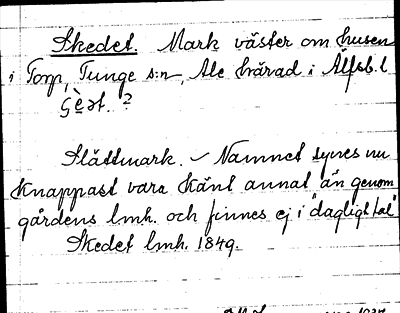 Skedet. Mark väster om husen
i Torp, Tunge s:n, Ale härad i Älfsb. l
Slåttmark. – Namnet synes nu
knappast vara känt annat än genom
gårdens lmh. och finnes ej i "dagligt tal"
Skedet lmh. 1849.